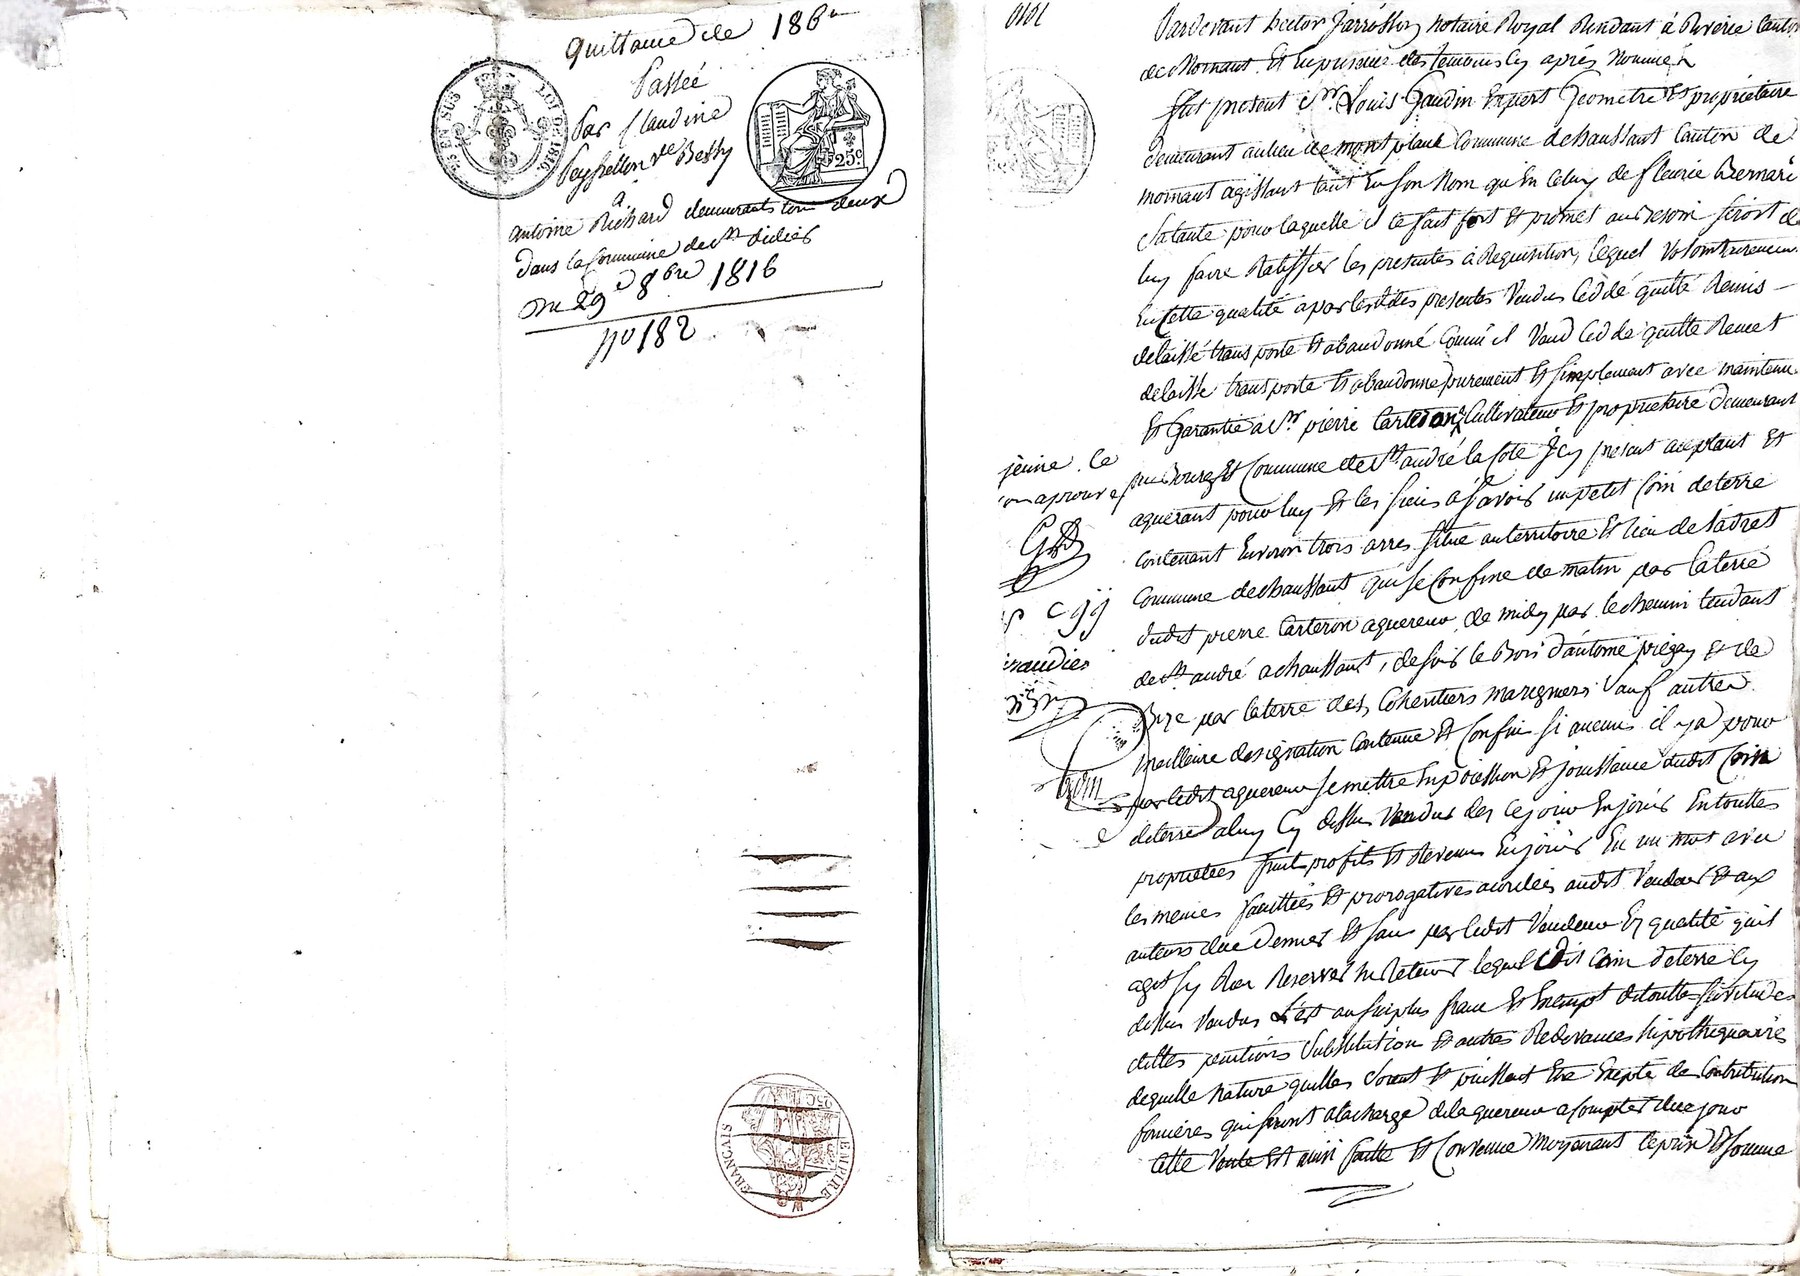 quittance de 186 ᶠʳ
Passée
Par Claudine
Peyssellon vᵉ Bessy
a
antoine Richard demeurants tous deux
dans la Commune de Sᵗ didier
Du 29 8bre 1816
nº 182
25 EN SUS LOI DE 1816
25 c
EMPIRE FRANÇAIS
Pardevant hector Jarrosson notaire Royal Residant à Riverie Canton
de Mornant. Et En presence des temoins Cy après Nommés
fut present Sʳ. Louis Gaudin Expert Geometre Et propriétaire
demeurant au lieu de mont plant Commune de chaussant Canton de
mornant agissant tant En son Nom qu'En Celuy de fleurie Bernard
Sa tante pour laquelle il se fait fort Et promet au besoin serort de
luy faire Ratiffier les presentes à Requisition, lequel volontairement
En Cette qualité a par les dittes presentes Vendus Ceddé quitté Remis
delaissé transporté Et abandonné Comme il Vend Cedde quitte Remet
delaisse transporte Et abandonne purement Et simplement avec maintenu
Et Garantie a Sʳ. pierre Carteron Cultivateur Et proprietaire demeurant
au Bourg Et Commune de Sᵗ. andré la Cote Icy present aceptant Et
aquerant pour luy Et les siens àsavoir un petit Coin de terre
Contenant Environ trois arres situé au territoire Et lieu de l'adret
Commune de chaussant qui se Confine de matin par la terre
dudit pierre Carteron aquereur, de midy par le chemin tendant
de Sᵗ. andré a chaussant, de soir le Bois d'antoine piégay et de
Bize par la terre des Coheritiers marigniers Sauf autre
meilleure designation Contenue Et Confin si aucuns il y a pour
par ledit aquereur se mettre En posession Et jouissance dudit Coin
de terre a luy Cy dessus Vendus des ce jour En jouir En touttes
proprietées fruit profits Et Revenus En jouir En un mot avec
les memes facultées Et prorogatives acordées audit Vendeur Et aux
auteurs de ce Dernier Et sans par ledit Vendeur En qualité qu'il
agit sy Rien Reserver ni Retenir lequel dit Coin de terre Cy
dessus Vendus Est au surplus franc Et Exempt de touttes servitudes
dettes pentions Substitution Et autres Redevances hipothequaires
de quelle nature quelles soient Et puissent Etre Excepté des Contribution
foncières qui seront a la charge de laquereur a Compter de ce jour
Cette Vente Est ainsi faitte Et Convenue moyenant le prix Et somme
jeune. Ce
on aprouve
Gᵈⁱⁿ
p C gg